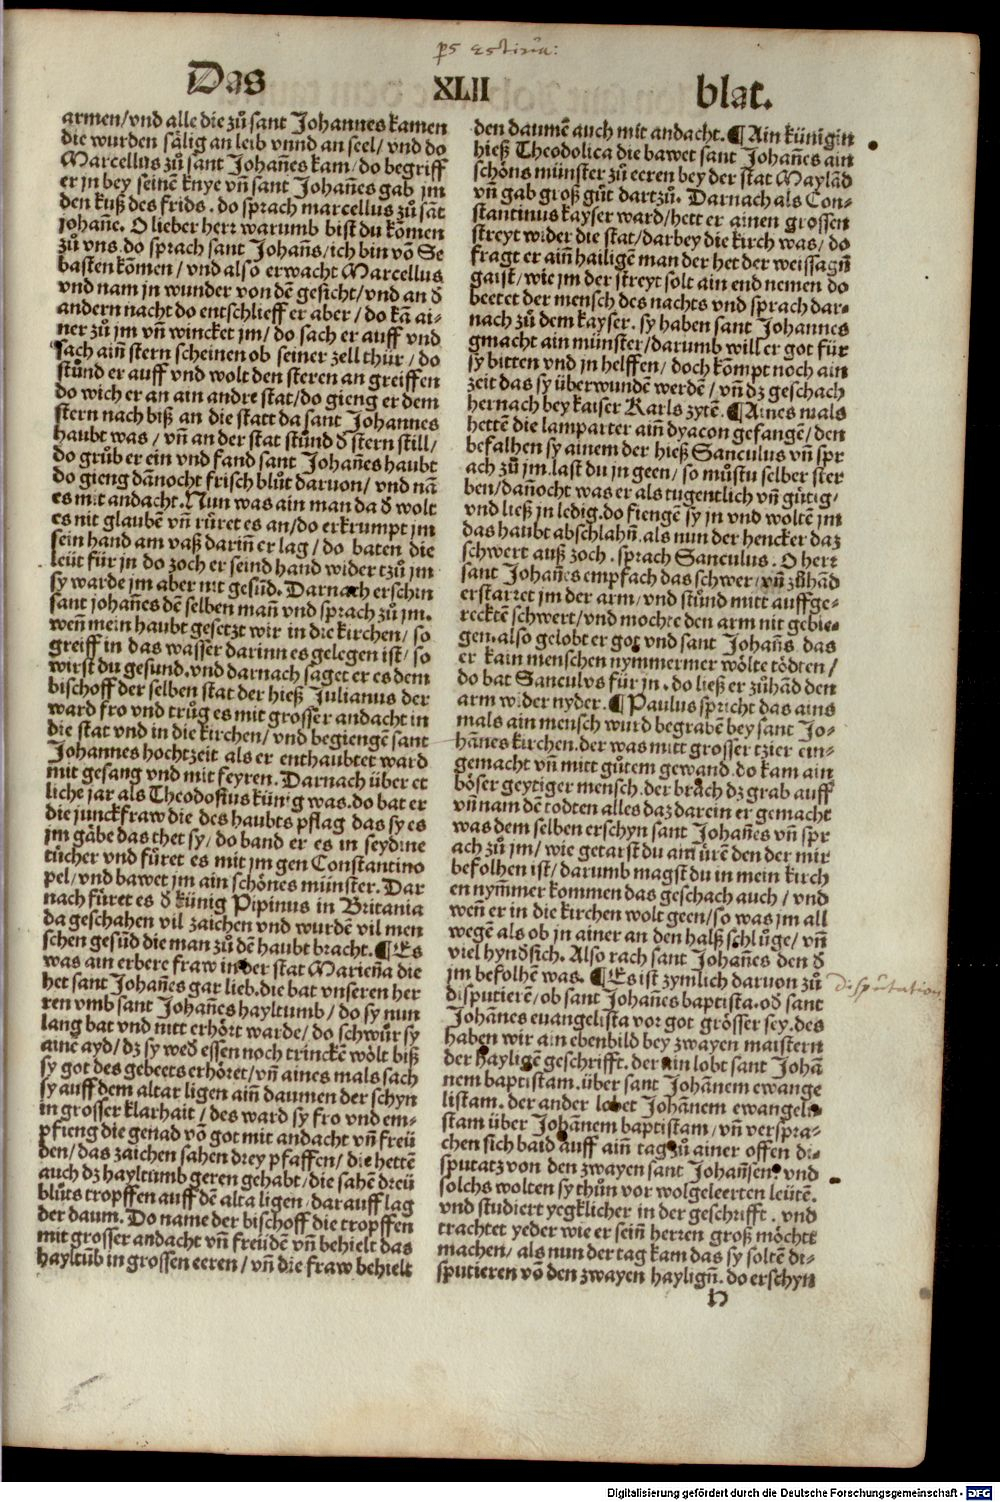 Das XLII blat.
armen/vnd alle die zů sant Johannes kamen
die wurden sälig an leib vnnd an seel/vnd do
Marcellus zů sant Johañes kam/do begriff
er jn bey seinē knye vñ sant Johañes gab jm
den kuß des frids. do sprach marcellus zů sāt
johañe. O lieber herr warumb bist du kōmen
zů vns. do sprach sant Johañs/ich bin vō Se
basten kōmen/vnd also erwacht Marcellus
vnd nam jn wunder von dē gesicht/vnd an ď
andern nacht do entschlieff er aber/do kā ai-
ner zů jm vñ wincket jm/do sach er auff vnd
sach aiñ stern scheinen ob seiner zell thür/do
stůnd er auff vnd wolt den steren an greiffen
do wich er an ain andre stat/do gieng er dem
stern nach biß an die statt da sant Johannes
haubt was/vñ an der stat stůnd ď stern still/
do grůb er ein vnd fand sant Johañes haubt
do gieng dānocht frisch blůt daruon/vnd nā
es mit andacht. Nun was ain man da ď wolt
es nit glaubē vñ růret es an/do erkrumpt jm
sein hand am vaß dariñ er lag/do baten die
leüt für jn do zoch er seind hand wider tzů jm
sy warde jm aber nit gesūd. Darnach erschin
sant johañes dē selben mañ vnd sprach zů jm.
weñ mein haubt gesetzt wir in die kirchen/so
greiff in das wasser darinn es gelegen ist/so
wirst du gesund. vnd darnach saget er es dem
bischoff der selben stat der hieß Julianus der
ward fro vnd trůg es mit grosser andacht in
die stat vnd in die kirchen/vnd begiengē sant
Johannes hochtzeit als er enthaubtet ward
mit gesang vnd mit feyren. Darnach über et
liche jar als Theodosius künig was. do bat er
die junckfraw die des haubts pflag das sy es
jm gäbe das thet sy/do band er es in seydine
tücher vnd fůret es mit jm gen Constantino
pel/vnd bawet jm ain schönes münster. Dar
nach fůret es ď künig Pipinus in Britania
da geschahen vil zaichen vnd wurdē vil men
schen gesūd die man zů dē haubt bracht. ¶ Es
was ain erbere fraw in der stat Marieña die
het sant Johañes gar lieb. die bat vnseren her
ren vmb sant Johañes hayltumb/do sy nun
lang bat vnd nitt erhört warde/do schwůr sy
ainē ayd/dz sy weď essen noch trinckē wölt biß
sy got des gebeets erhöret/vñ aines mals sach
sy auff dem altar ligen aiñ daumen der schyn
in grosser klarhait/des ward sy fro vnd em-
pfieng die genad vō got mit andacht vñ freü
den/das zaichen sahen drey pfaffen/die hettē
auch dz hayltumb geren gehabt/die sahē dreü
blůts tropffen auff dē alta ligen/darauff lag
der daum. Do name der bischoff die tropffen
mit grosser andacht vñ freüdē vñ behielt das
hayltūb in grossen eeren/vñ die fraw behielt
den daumē auch mit andacht. ¶ Ain künigin
hieß Theodolica die bawet sant Johañes ain
schöns münster zů eeren bey der stat Maylād
vñ gab groß gůt dartzů. Darnach als Con-
stantinus kayser ward/hett er ainen grossen
streyt wider die stat/darbey die kirch was/do
fragt er aiñ hailigē man der het der weissagñ
gaist/wie jm der streyt solt ain end nemen do
beetet der mensch des nachts vnd sprach dar-
nach zů dem kayser. sy haben sant Johannes
gmacht ain münster/darumb will er got für
sy bitten vnd jn helffen/doch kōmpt noch ain
zeit das sy überwundē werdē/vñ dz geschach
hernach bey kaiser Karls zytē. ¶ Aines mals
hettē die lamparter aiñ dyacon gefangē/den
befalhen sy ainem der hieß Sanculus vñ spr
ach zů jm. last du jn geen/so můstu selber ster
ben/dañocht was er als tugentlich vñ gütig/
vnd ließ jn ledig. do fiengē sy jn vnd woltē jm
das haubt abschlahñ. als nun der hencker daz
schwert auß zoch. sprach Sanculus. O herr
sant Johañes empfach das schwer/vñ zůhād
erstarret jm der arm/vnd stůnd mitt auffge-
recktē schwert/vnd mochte den arm nit gebie-
gen. also gelobt er got vnd sant Johañs das
er kain menschen nymmermer wölte tödten/
do bat Sanculvs für jn. do ließ er zůhād den
arm wider nyder. ¶ Paulus spricht das ains
mals ain mensch wurd begrabē bey sant Jo-
hānes kirchen. der was mitt grosser tzier ein-
gemacht vñ mitt gůtem gewand. do kam ain
böser geytiger mensch. der brach dz grab auff
vñ nam dē todten alles daz darein er gemacht
was dem selben erschyn sant Johañes vñ spr
ach zů jm/wie getarst du an rüren den der mir
befolhen ist/darumb magst du in mein kirch
en nym̄mer kommen das geschach auch/vnd
weñ er in die kirchen wolt geen/so was jm all
wegē als ob jn ainer an den halß schlüge/vñ
viel hynďsich. Also rach sant Johañes den ď
jm befolhē was. ¶ Es ist zymlich daruon zů
disputierē/ob sant Johañes baptista. oď sant
Johānes euangelista vor got grösser sey. des
haben wir ain ebenbild bey zwayen maistern
der hayligē geschrifft. der ain lobt sant Johā
nem baptistam. über sant Johānem ewange
listam. der ander lobet Johānem ewangeli-
stam über Johānem baptistam/vñ verspra-
chen sich baid auff aiñ tag zů ainer offen di-
sputatz von den zwayen sant Johañsen. vnd
solchs wolten sy thůn vor wolgeleerten leütē.
vnd studiert yegklicher in der geschrifft. vnd
trachtet yeder wie er seiñ herren groß möchte
machen/als nun der tag kam das sy soltē di-
sputieren vō den zwayen hayligñ. do erschyn
Disputation
h
Digitalisierung gefördert durch die Deutsche Forschungsgemeinschaft - DFG